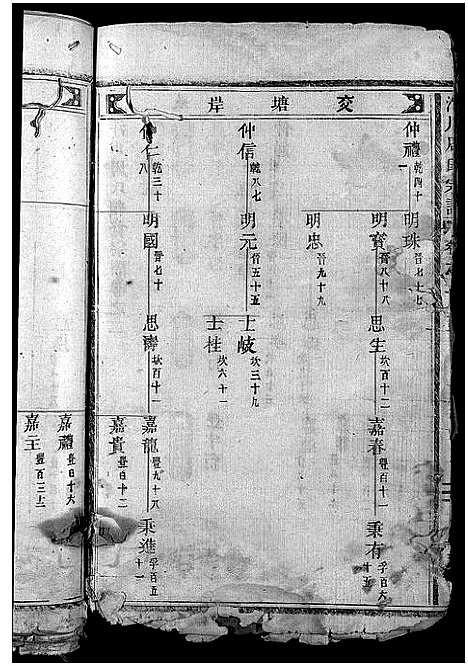 交塘岸
仲禮 乾四十一
明珠 晉七十七
明寶 晉八十八
思生 坎百十二
嘉春 豐百十一
秉有 孚百六十五
明忠 晉九十九
仲信 乾八七
明元 晉五十五
士岐 坎三十九
士桂 坎六十一
仁 乾三十八
明國 晉七十
思濤 坎百十一
嘉龍 豐九十八
秉進 孚百五十一
嘉貴 豐百十二
嘉禮 豐百十六
嘉主 豐百三十二